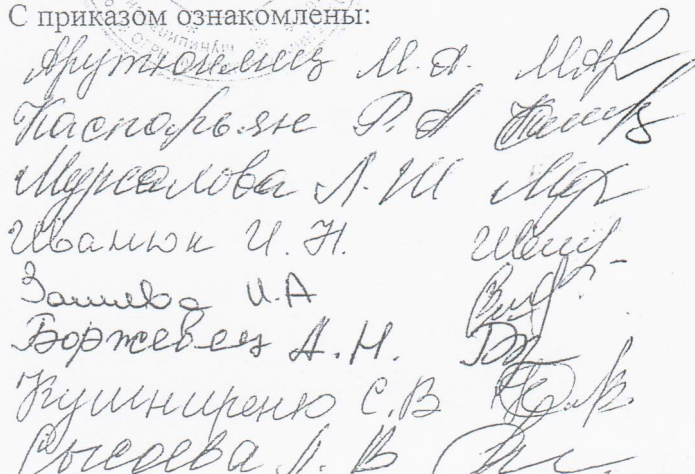 С приказом ознакомлены:
Арутюнянц М.А.
Каспарьян Р.А
Мурсалова Л.Ш
Иванюк И.Н.
И.А
Боржевец А.Н.
Кушниренко С.В
Сысоева Л.В